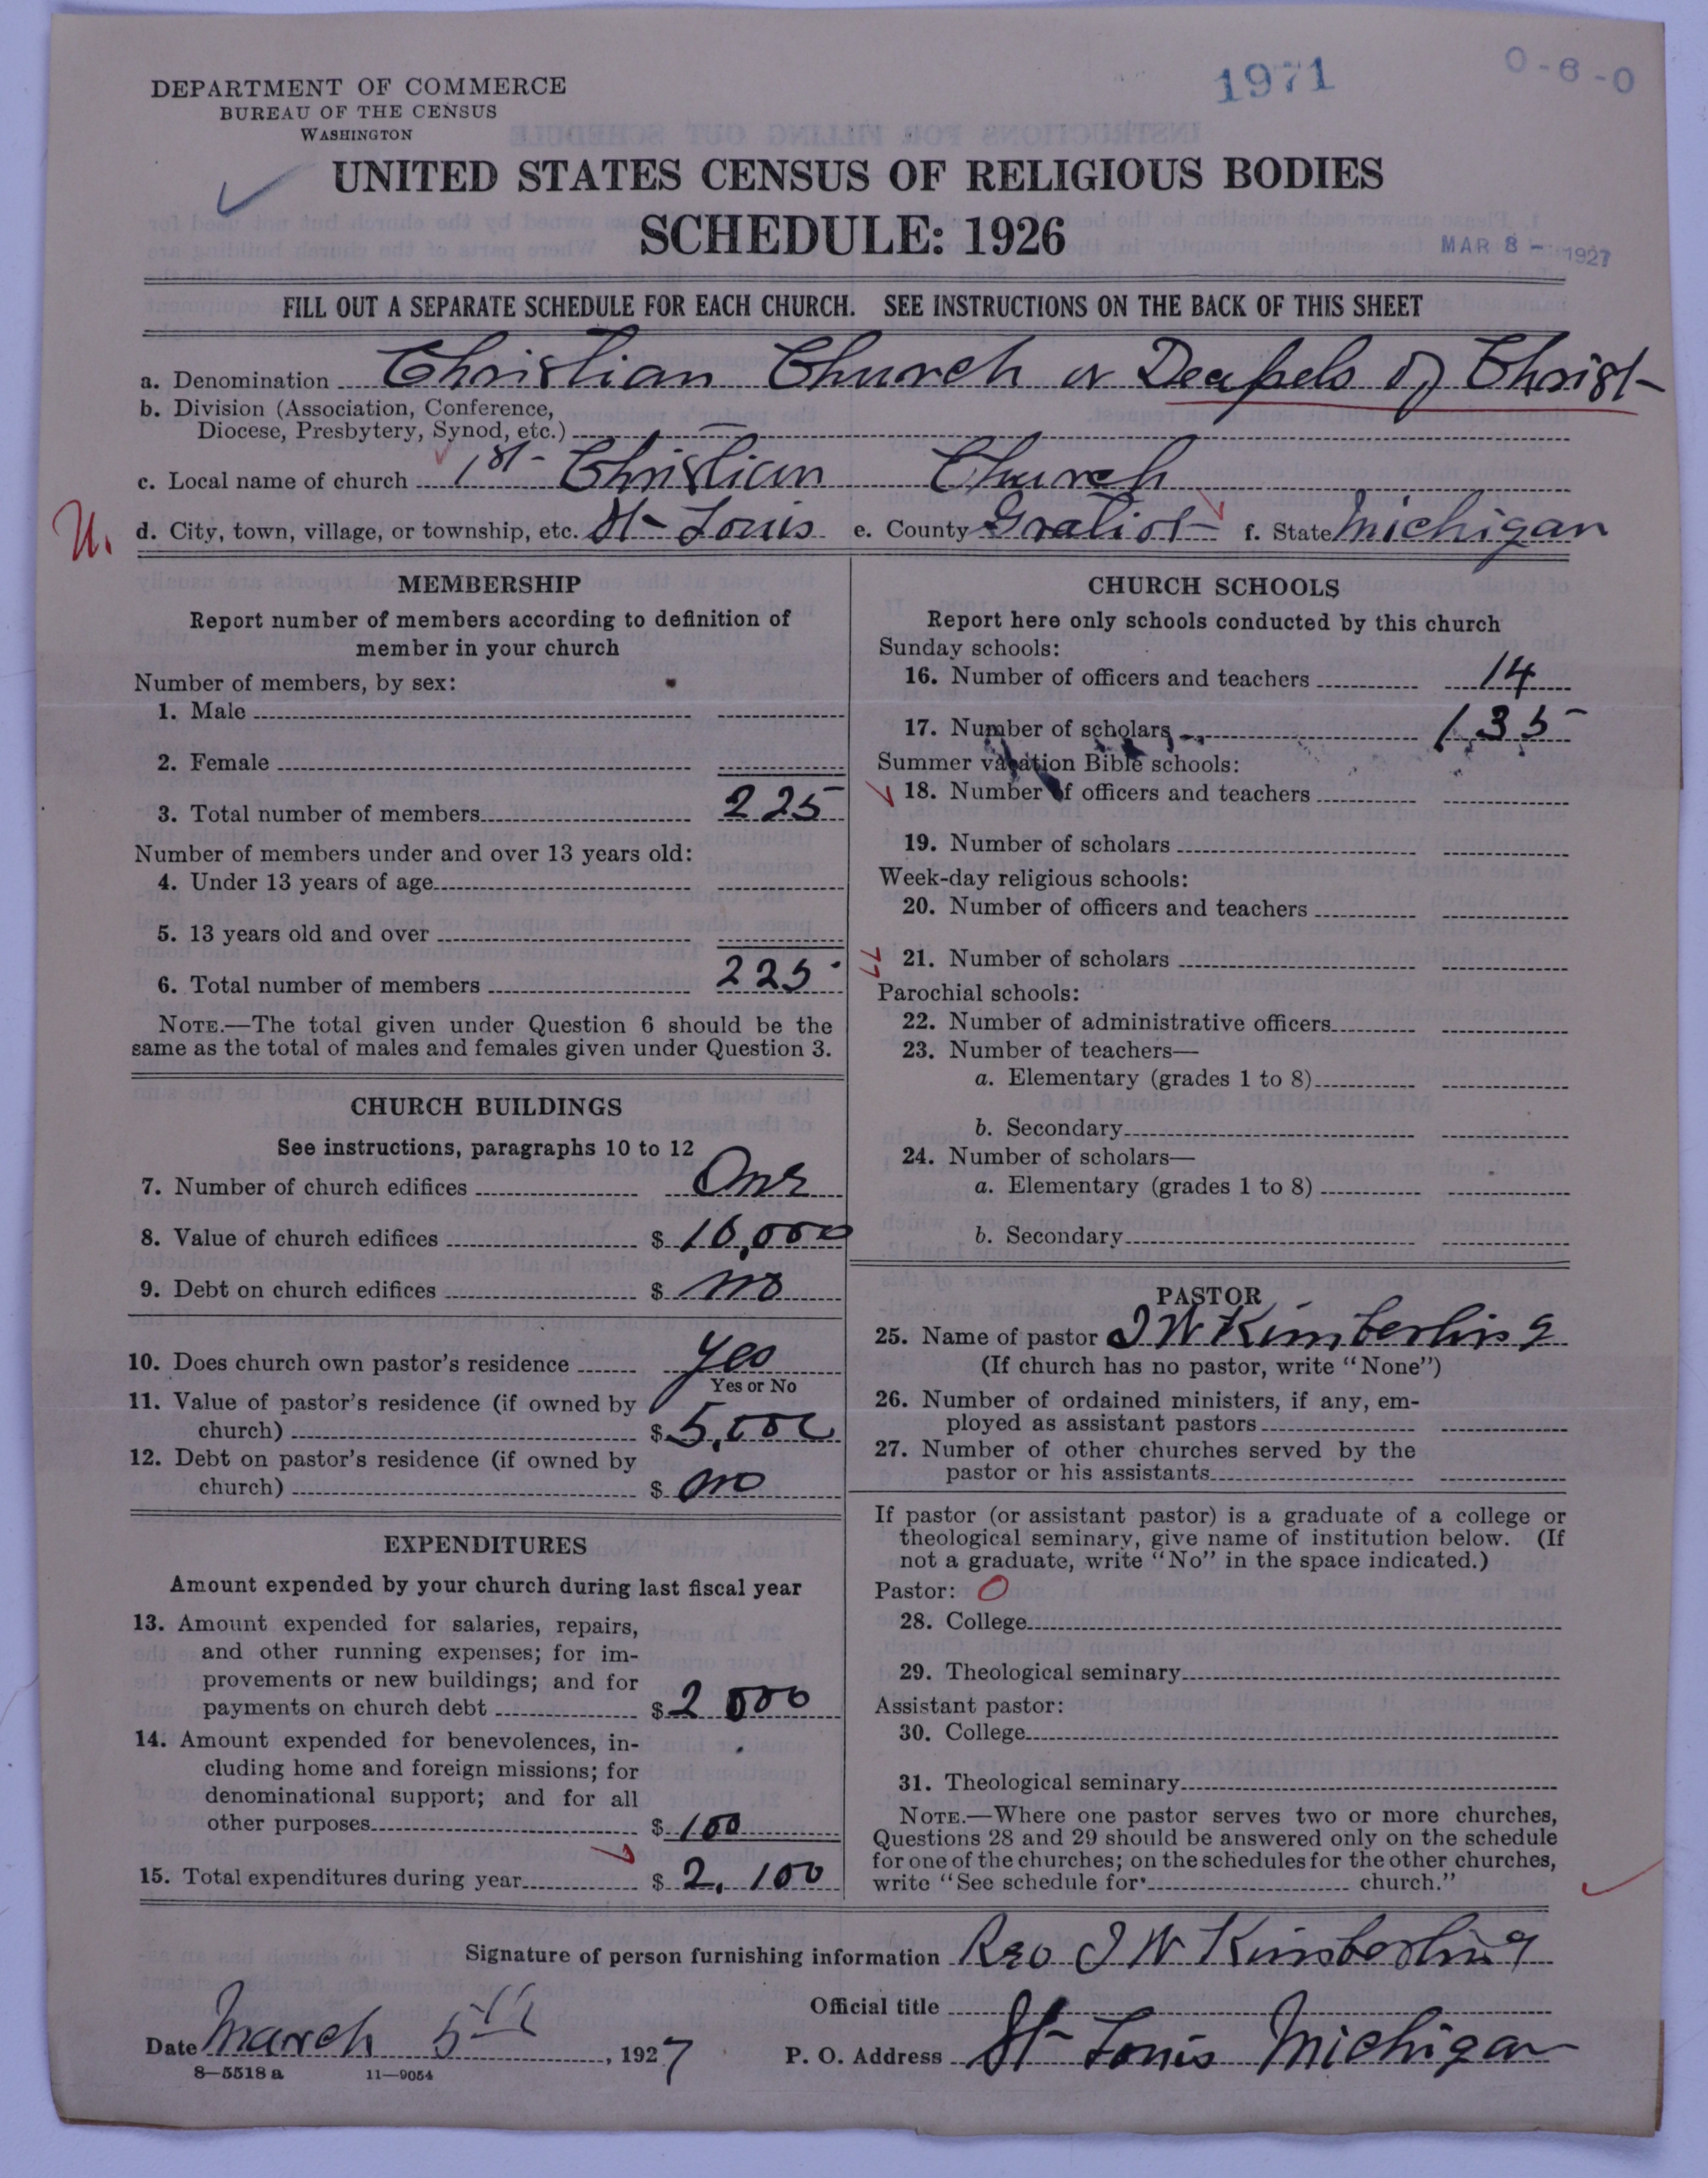 1971
0-6-0
DEPARTMENT OF COMMERCE
BUREAU OF THE CENSUS
WASHINGTON
UNITED STATES CENSUS OF RELIGIOUS BODIES
SCHEDULE: 1926
MAR 8 - 1927
FILL OUT A SEPARATE SCHEDULE FOR EACH CHURCH. SEE INSTRUCTIONS ON THE BACK OF THIS SHEET
a. Denomination Christian Church or of Christ
b. Division (Association, Conference,
Diocese, Presbytery, Synod, etc.) —
c. Local name of church 1st Christian Church
U. d. City, town, village, or township, etc. St Louis e. County Gratiot f. State Michigan
MEMBERSHIP
Report number of members according to definition of
member in your church
Number of members, by sex:
1. Male
2. Female
3. Total number of members 225
Number of members under and over 13 years old:
4. Under 13 years of age
5. 13 years old and over
6. Total number of members 225
NOTE.—The total given under Question 6 should be the
same as the total of males and females given under Question 3.
CHURCH BUILDINGS
See instructions, paragraphs 10 to 12
7. Number of church edifices One
8. Value of church edifices $ 10,000
9. Debt on church edifices $ no
10. Does church own pastor's residence yes
Yes or No
11. Value of pastor's residence (if owned by
church) $ 5,000
12. Debt on pastor's residence (if owned by
church) $ no
EXPENDITURES
Amount expended by your church during last fiscal year
13. Amount expended for salaries, repairs,
and other running expenses; for im-
provements or new buildings; and for
payments on church debt $ 2000
14. Amount expended for benevolences, in-
cluding home and foreign missions; for
denominational support; and for all
other purposes $ 100
15. Total expenditures during year $ 2,100
CHURCH SCHOOLS
Report here only schools conducted by this church
Sunday schools:
16. Number of officers and teachers 14
17. Number of scholars 135
Summer vacation Bible schools:
18. Number of officers and teachers
19. Number of scholars
Week-day religious schools:
20. Number of officers and teachers
21. Number of scholars
Parochial schools:
22. Number of administrative officers
23. Number of teachers—
a. Elementary (grades 1 to 8)
b. Secondary
24. Number of scholars—
a. Elementary (grades 1 to 8)
b. Secondary
PASTOR
25. Name of pastor J W Kimberling
(If church has no pastor, write "None")
26. Number of ordained ministers, if any, em-
ployed as assistant pastors
27. Number of other churches served by the
pastor or his assistants
If pastor (or assistant pastor) is a graduate of a college or
theological seminary, give name of institution below. (If
not a graduate, write "No" in the space indicated.)
Pastor: O
28. College
29. Theological seminary
Assistant pastor:
30. College
31. Theological seminary
NOTE.—Where one pastor serves two or more churches,
Questions 28 and 29 should be answered only on the schedule
for one of the churches; on the schedules for the other churches,
write "See schedule for church."
Signature of person furnishing information Rev J W Kimberling
Official title
Date March 5th, 1927 P. O. Address St Louis Michigan
8—5518 a 11—9054